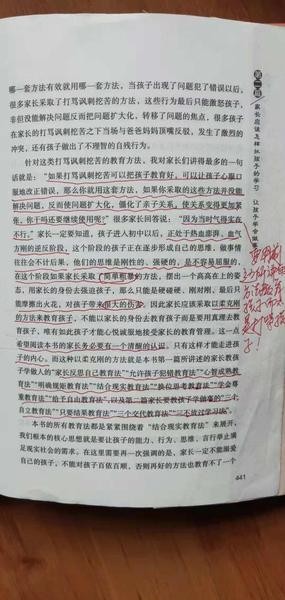 哪一套方法有效就用哪一套方法，当孩子出现了问题犯了错误以后，
很多家长采取了打骂讽刺挖苦的方法，这些行为最后只能激怒孩子，
非但没能解决问题反而把问题扩大化，转移了问题的焦点，很多孩子
在家长的打骂讽刺挖苦之下当场与爸爸妈妈顶嘴反驳，发生了激烈的
冲突，还有孩子做出了不理智的自残行为。
针对这类打骂讽刺挖苦的教育方法，我对家长们讲得最多的一句
话就是：“如果打骂讽刺挖苦可以把孩子教育好，可以让孩子心服口
服地改正错误，那么你就用这套方法，如果你采取的这些方法并没能
解决问题，反而使问题扩大化，僵化了亲子关系，使关系变得更加紧
张，你干吗还要继续使用呢？”很多家长回答说：“因为当时气得实在
不行。”家长一定要知道，孩子进入初中以后，正处于热血澎湃、血气
方刚的逆反阶段，这个阶段的孩子正在逐步形成自己的思维，做事情
往往会不计后果，他们的思维是刚性的、强硬的，是不容易屈服的，
在这个阶段如果家长采取了简单粗暴的方法，摆出一个高高在上的姿
态，用家长的身份去强迫孩子，那么只能是硬碰硬、刚对刚，最后只
能摩擦出火花，对孩子带来很大的伤害。因此家长应该采取以柔克刚
的方法来教育孩子，不能以家长的身份去教育孩子而是要用真理去教
育孩子，唯有如此孩子才能心悦诚服地接受家长的教育管理。这一点
希望阅读本书的家长务必要有一个清醒的认识，只有这样才能走进孩
子的内心。而这种以柔克刚的方法就是本书第一篇所讲述的家长教孩
子学做人的“家长反思自己教育法”“允许孩子犯错教育法”“心智成熟教
育法”“明确规矩教育法”“结合现实教育法”“换位思考教育法”“学会尊
重教育法”“给予自由教育法”，以及第二篇家长要教孩子学做事的“三个
自立教育法”“只要结果教育法”“三个交代教育法”“三不放过学习法”。
本书的所有教育法都是紧紧围绕着“结合现实教育法”来展开，
我们根本的核心思想就是要让孩子的能力、行为、思维、言行举止满
足现实社会的需求。在这里需要再一次强调的是，家长一定不能溺爱
自己的孩子，不能对孩子百依百顺，否则再好的方法也教育不了一个
441
第二篇
家长应该怎样抓孩子的学习
让孩子学会做事